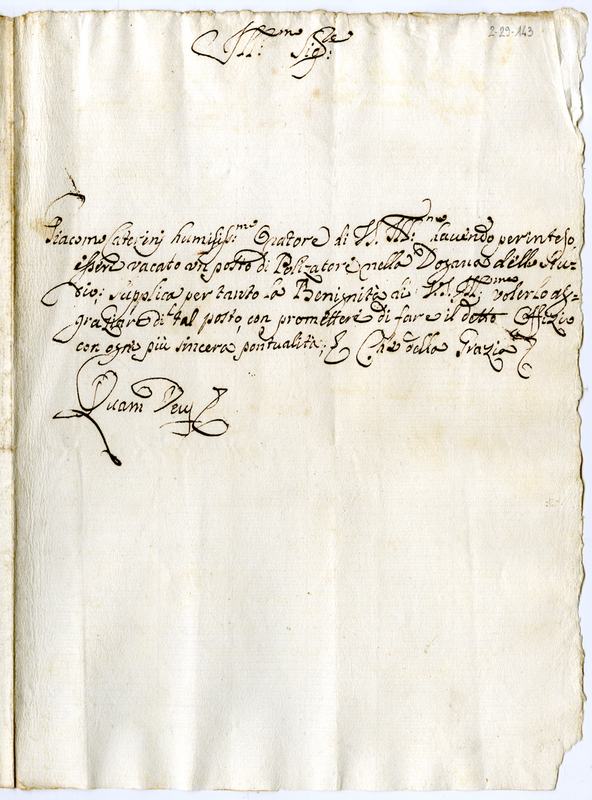 2-29-143
Ill:mo Sig:re
Giacomo Caterinj humiliss:mo Oratore di V. Ill:ma havendo perinteso
essere vacato un posto di Polizatore nella Dogana dello Stu-
dio: supplica per tanto la Benignità di V. Ill:ma volerlo ag-
graziare di tal posto con promettere di fare il detto Offizio
con ogni più sincera pontualità; della Grazia
Quam Deus